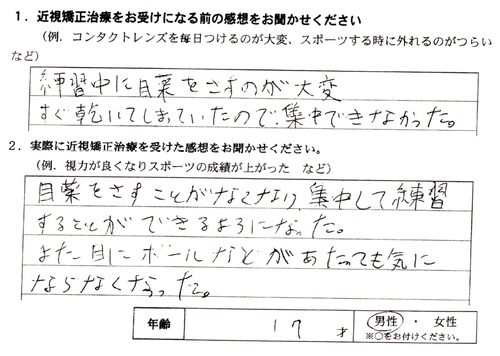 1．近視矯正治療をお受けになる前の感想をお聞かせください
（例．コンタクトレンズを毎日つけるのが大変、スポーツする時に外れるのがつらい
など）
練習中に目薬をさすのが大変
すぐ乾いてしまっていたので、集中できなかった。
2．実際に近視矯正治療を受けた感想をお聞かせください。
（例．視力が良くなりスポーツの成績が上がった　など）
目薬をさすことがなくなり、集中して練習
することができるようになった。
また目にボールなどがあたっても気に
ならなくなった。
年齢　17才　男性・女性
※○をお付けください。